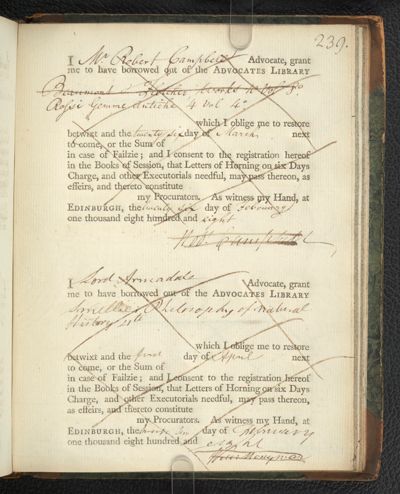 239.
I Mr Robert Campbell Advocate, grant
me to have borrowed out of the ADVOCATES LIBRARY
Beaumont & Fletchers works
Rossi Gemme antiche 4 vol 4o
which I oblige me to restore
betwixt and the twenty six day of March next
to come, or the Sum of
in case of Failzie; and I consent to the registration hereof
in the Books of Session, that Letters of Horning on six Days
Charge, and other Executorials needful, may pass thereon, as
effeirs, and thereto constitute
my Procurators. As witness my Hand, at
EDINBURGH, the twenty six day of February
one thousand eight hundred and eight
Robt. Campbell
I Lord Armadale Advocate, grant
me to have borrowed out of the ADVOCATES LIBRARY
Smellies Philosophy of Natural
History
which I oblige me to restore
betwixt and the first day of April next
to come, or the Sum of
in case of Failzie; and I consent to the registration hereof
in the Books of Session, that Letters of Horning on six Days
Charge, and other Executorials needful, may pass thereon,
as effeirs, and thereto constitute
my Procurators. As witness my Hand, at
EDINBURGH, the day of
one thousand eight hundred and eight